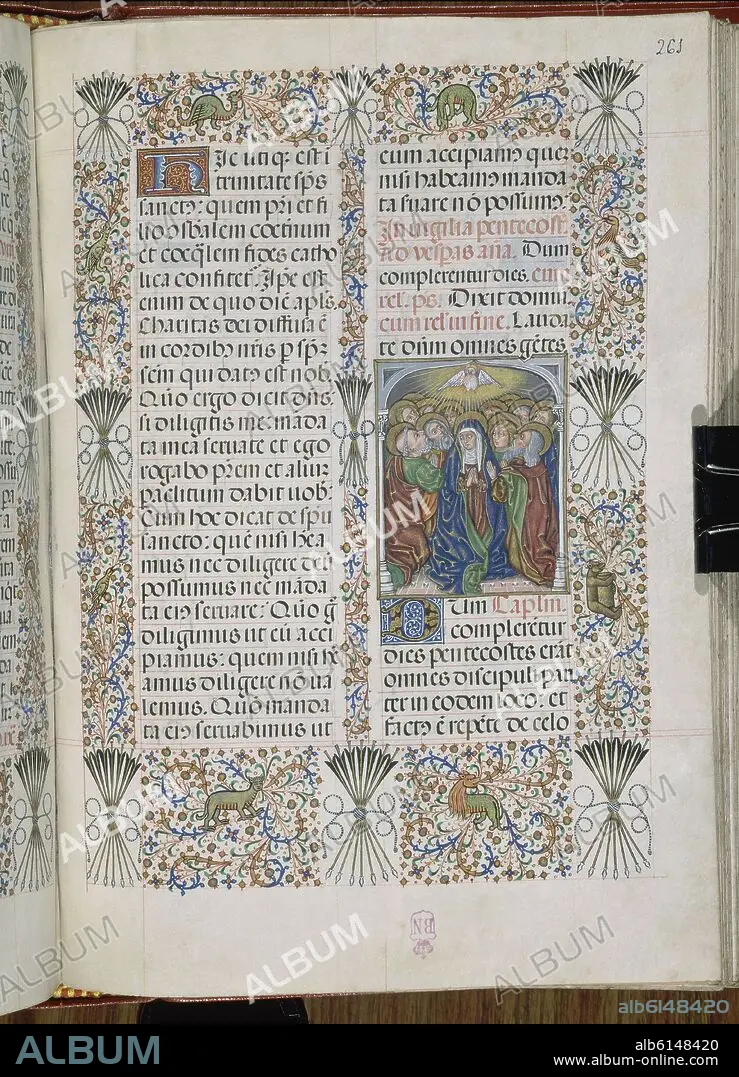 261
Hic utiq̃ est i
trinitate sp̃s
sanctꝰ: quem pr̃i et fi
lio ↄsb̃alem coet̃num
et coeq̃lem fides catho
lica confitet̃. Ip̃e est
enim de quo dic̃ apl̃s.
Charitas dei diffusa ẽ
in cordibꝰ nr̃is p sp̃r
sc̃m qui datꝰ est nob̃.
Quo ergo dicit dñs:
si diligitis me: mãda
ta mea seruate et ego
rogabo pr̃em et aliũ
paclitum dabit uob̃.
Cum hoc dicat de sp̃u
sancto: quẽ nisi hẽa
mus nec diligere deũ
possumus nec mãda
ta eiꝰ seruare: Quo g̃
diligimus ut eũ acci
piamus: quem nisi hẽ
amus diligere nõ ua
lemus. Quo manda
ta eiꝰ seruabimus ut
eum accipiamꝰ quẽ
nisi habeamꝰ manda
ta suare nõ possumꝰ.
In uigilia pentecost̃.
ad vesp̃as añа. Dum
complerentur dies. cure
rel. ps. Dixit domiꝰ.
cum rel. in fine. Lauda
te dñm omnes gẽtes
Dum Caplm̃.
complerẽtur
dies pentecostes erãt
omnes discipuli pari
ter in eodem loco: et
factꝰ ẽ repẽte de celo
BN
ALBUM
alb6148420
ALBUM
alb6148420
www.album-online.com